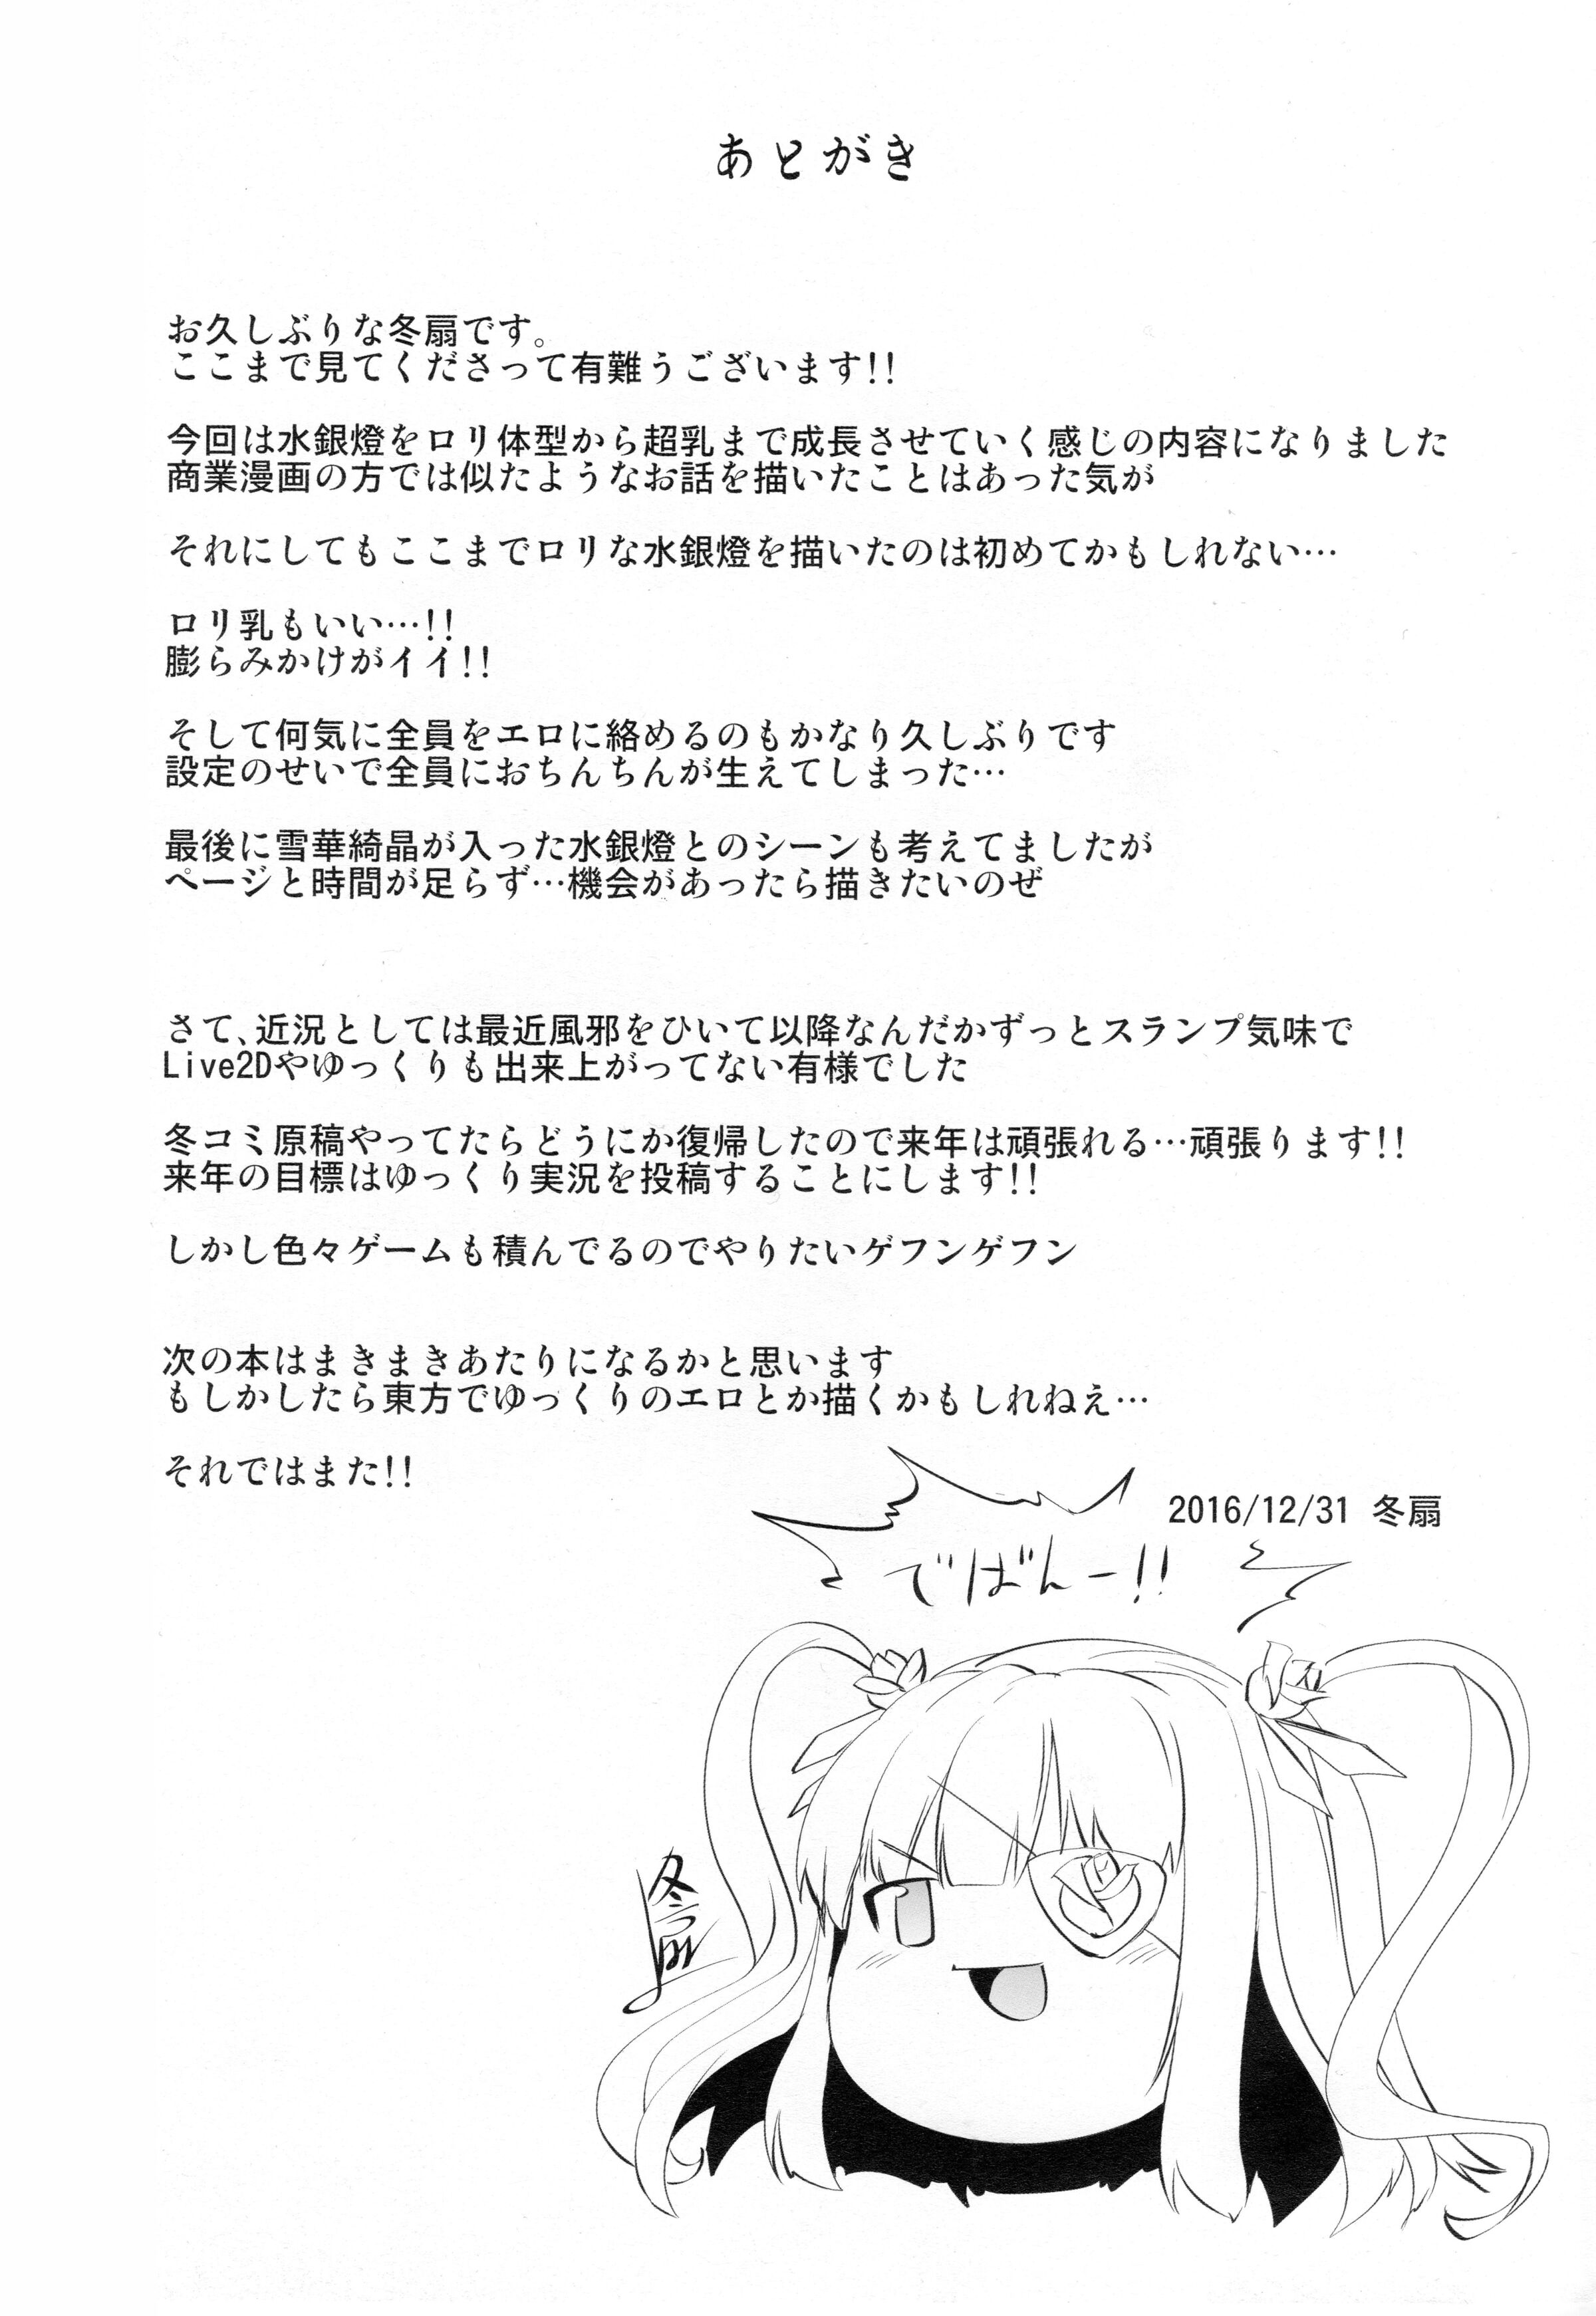 あとがき
お久しぶりな冬扇です。
ここまで見てくださって有難うございます!!
今回は水銀燈をロリ体型から超乳まで成長させていく感じの内容になりました
商業漫画の方では似たようなお話を描いたことはあった気が
それにしてもここまでロリな水銀燈を描いたのは初めてかもしれない…
ロリ乳もいい…!!
膨らみかけがイイ!!
そして何気に全員をエロに絡めるのもかなり久しぶりです
設定のせいで全員におちんちんが生えてしまった…
最後に雪華綺晶が入った水銀燈とのシーンも考えてましたが
ページと時間が足らず…機会があったら描きたいのぜ
さて、近況としては最近風邪をひいて以降なんだかずっとスランプ気味で
Live2Dやゆっくりも出来上がってない有様でした
冬コミ原稿やってたらどうにか復帰したので来年は頑張れる…頑張ります!!
来年の目標はゆっくり実況を投稿することにします!!
しかし色々ゲームも積んでるのでやりたいゲフンゲフン
次の本はまきまきあたりになるかと思います
もしかしたら東方でゆっくりのエロとか描くかもしれねえ…
それではまた!!
2016/12/31 冬扇
でばんー!!
冬扇